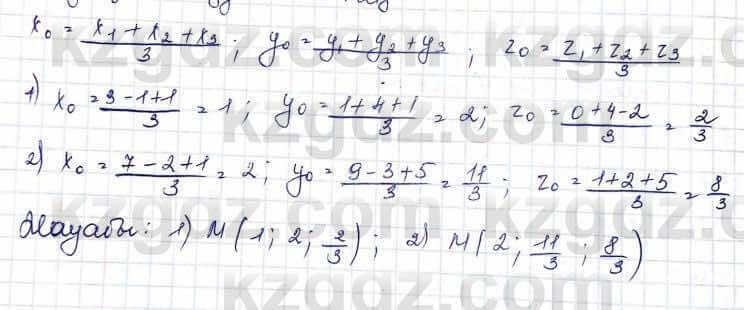 x₀ = (x₁ + x₂ + x₃)/3 ; y₀ = (y₁ + y₂ + y₃)/3 ; z₀ = (z₁ + z₂ + z₃)/3
1) x₀ = (3 - 1 + 1)/3 = 1 ; y₀ = (1 + 4 + 1)/3 = 2; z₀ = (0 + 4 - 2)/3 = 2/3
2) x₀ = (7 - 2 + 1)/3 = 2 ; y₀ = (9 - 3 + 5)/3 = 11/3 ; z₀ = (1 + 2 + 5)/3 = 8/3
Жауабы: 1) M(1; 2; 2/3) ; 2) M(2; 11/3 ; 8/3)